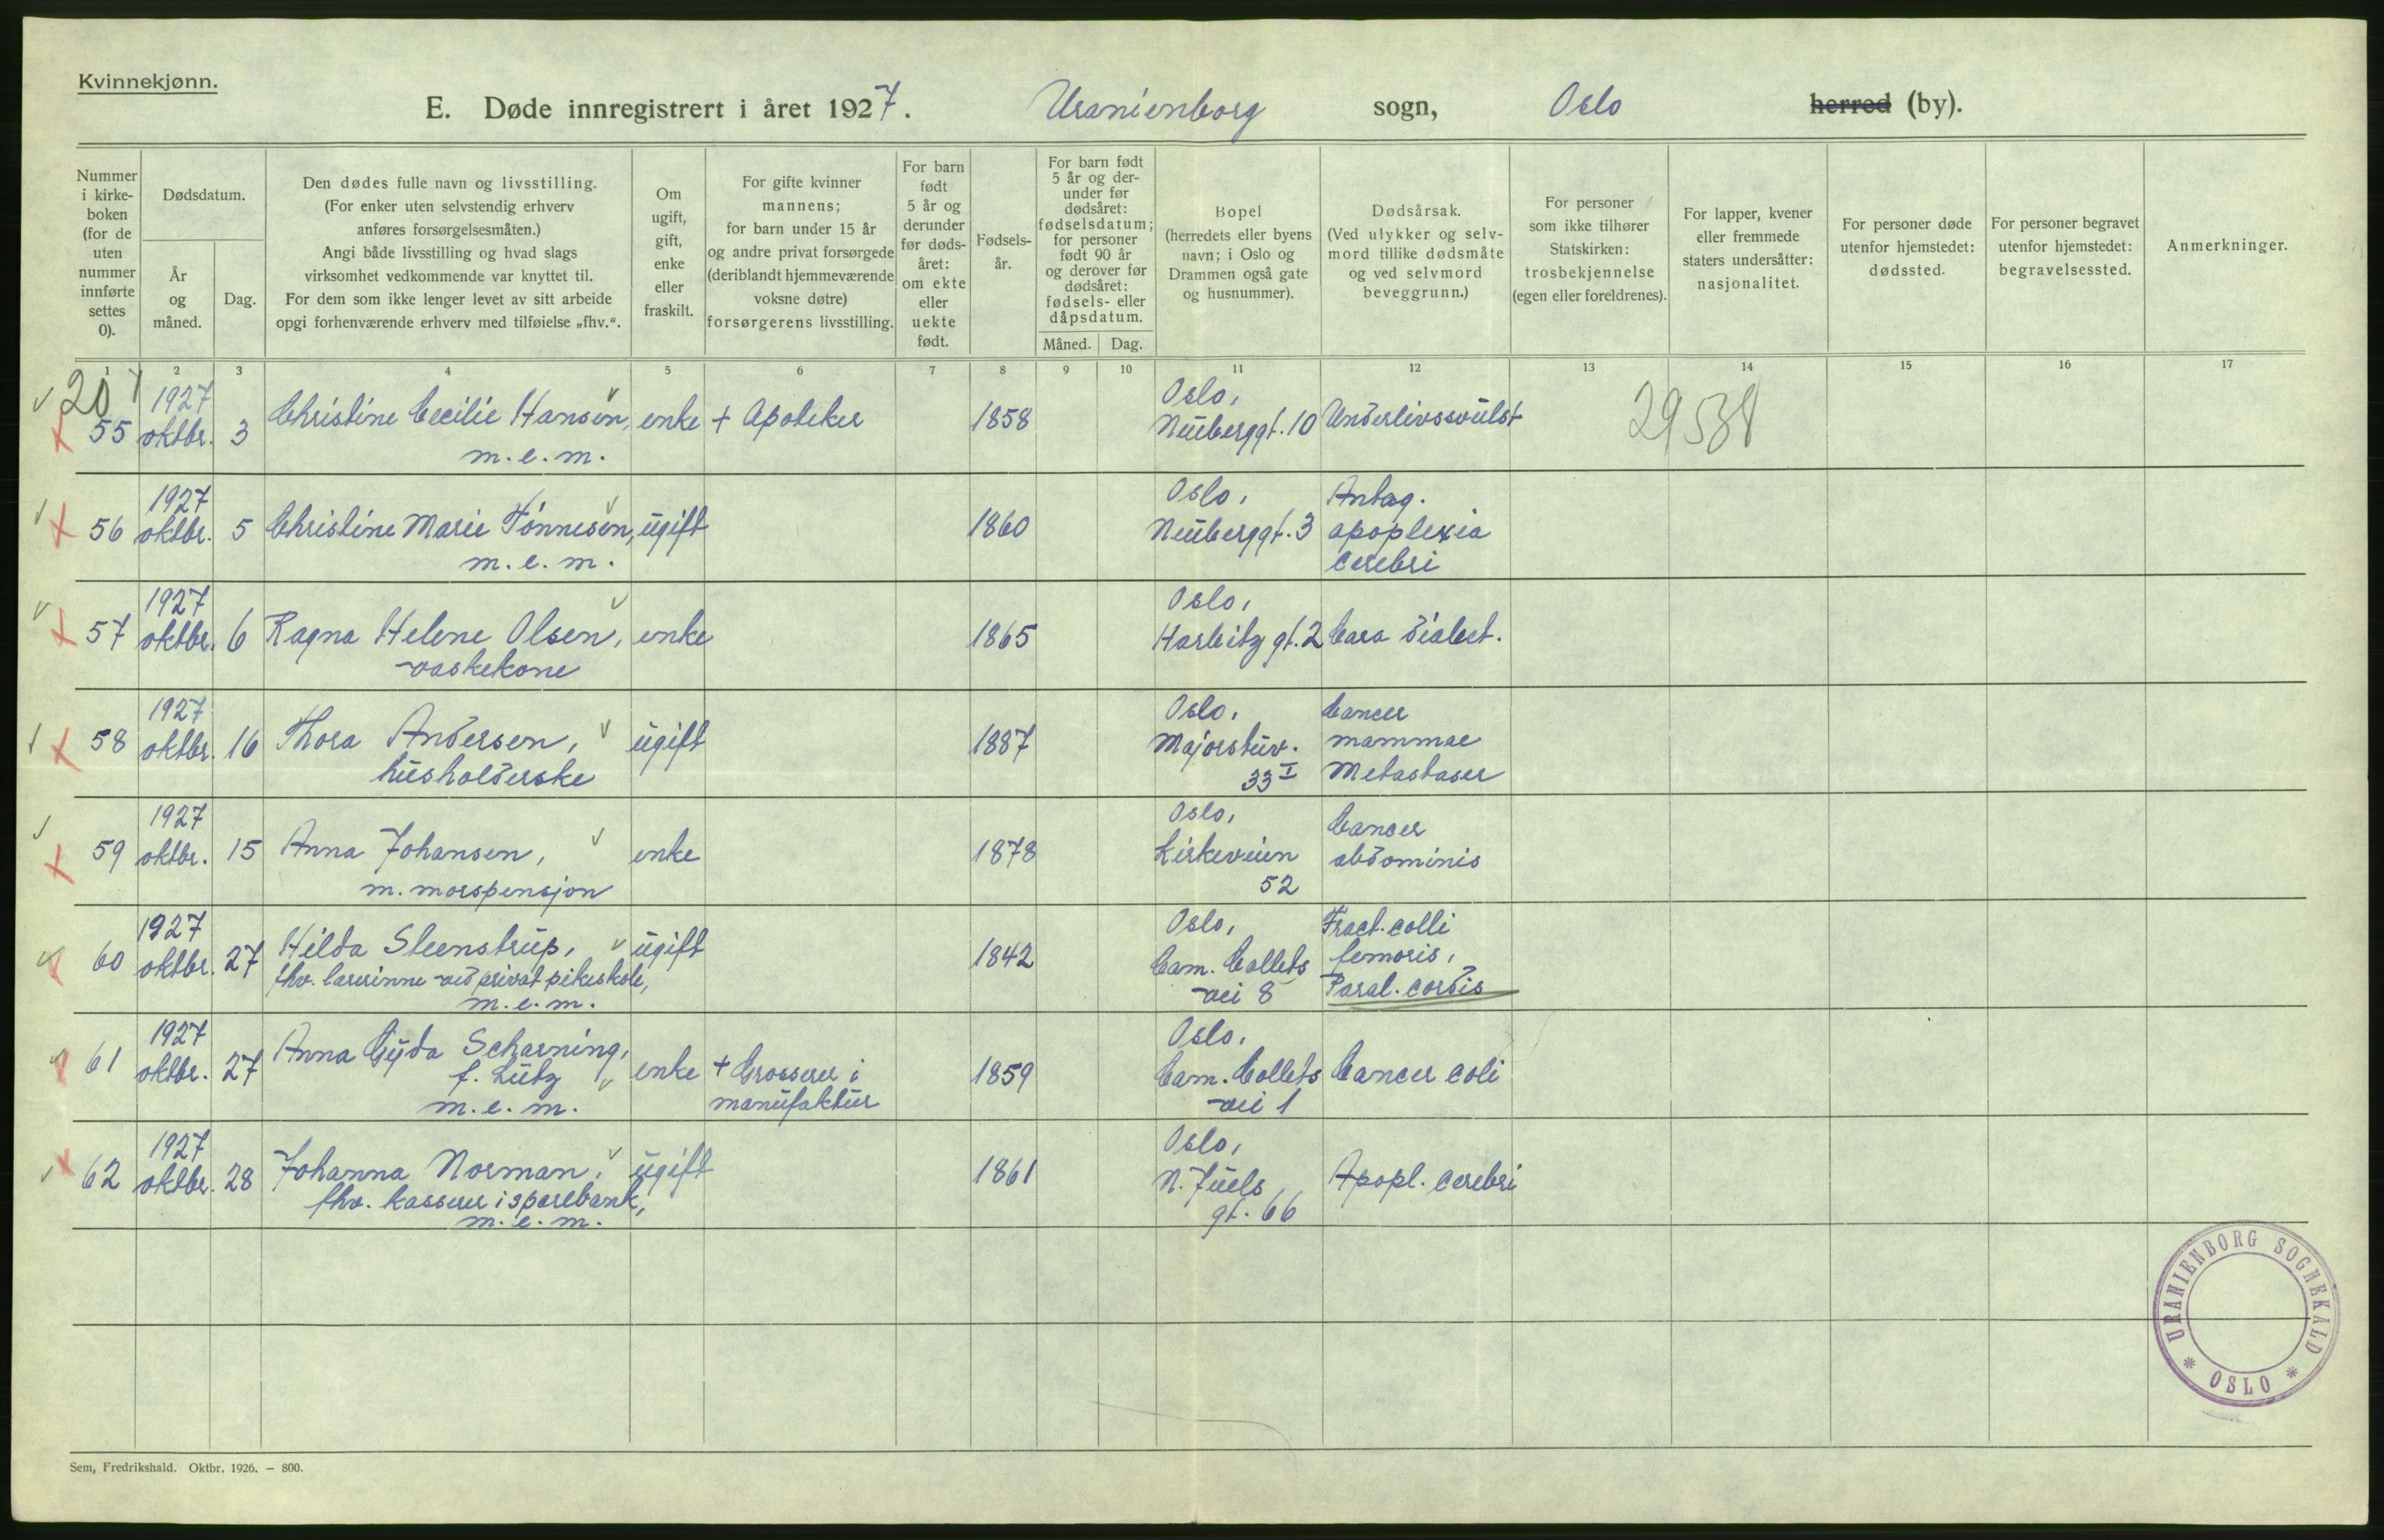 Kvinnekjønn.
E. Døde innregistrert i året 1927. Uranienborg sogn, Oslo herred (by).
Nummer i kirke-boken (for de uten nummer innførte settes 0).
Dødsdatum.
År og måned.
Dag.
Den dødes fulle navn og livsstilling.
(For enker uten selvstendig erhverv
anføres forsørgelsesmåten.)
Angi både livsstilling og hvad slags
virksomhet vedkommende var knyttet til.
For dem som ikke lenger levet av sitt arbeide
opgi forhenværende erhverv med tilføielse „fhv.“.
Om ugift, gift, enke eller fraskilt.
For gifte kvinner
mannens;
for barn under 15 år
og andre privat forsørgede
(deriblandt hjemmeværende
voksne døtre)
forsørgerens livsstilling.
For barn født 5 år og derunder før døds-året: om ekte eller uekte født.
Fødsels-år.
For barn født
5 år og der-
under før
dødsåret:
fødselsdatum;
for personer
født 90 år
og derover før
dødsåret:
fødsels- eller
dåpsdatum.
Måned. Dag.
Bopel
(herredets eller byens
navn; i Oslo og
Drammen også gate
og husnummer).
Dødsårsak.
(Ved ulykker og selv-
mord tillike dødsmåte
og ved selvmord
beveggrunn.)
For personer
som ikke tilhører
Statskirken:
trosbekjennelse
(egen eller foreldrenes).
For lapper, kvener
eller fremmede
staters undersåtter:
nasjonalitet.
For personer døde
utenfor hjemstedet:
dødssted.
For personer begravet
utenfor hjemstedet:
begravelsessted.
Anmerkninger.
1 2 3 4 5 6 7 8 9 10 11 12 13 14 15 16 17
207 1927 Oslo,
55 oktbr. 3 Christine Cecilie Hansen, enke + Apoteker 1858 Neuberggt. 10 Underlivssvulst 29538
m. e. m.
1927 Oslo, Antag.
56 oktbr. 5 Christine Marie Tönnesen, ugift 1860 Neuberggt. 3 apoplexia
m. e. m. cerebri
1927 Oslo,
57 oktbr. 6 Ragna Helene Olsen, enke 1865 Harbitz gt. 2 Cara diabet.
vaskekone
1927 Oslo, Cancer
58 oktbr. 16 Thora Andersen, ugift 1887 Majorstuv. mammae
husholderske 33 I Metastaser
1927 Oslo, Cancer
59 oktbr. 15 Anna Johansen, enke 1878 Kirkeveien abdominis
m. morspensjon 52
1927 Oslo, Fract. colli
60 oktbr. 27 Hilda Steenstrup, ugift 1842 Cam. Colletts femoris,
fhv. lærerinne ved privat pikeskole, vei 8 Paral. cordis
m. e. m.
1927 Oslo,
61 oktbr. 27 Anna Gyda Scharning, enke + Grosserer i 1859 Cam. Colletts Cancer coli
f. Lütz manufaktur vei 1
m. e. m.
1927 Oslo,
62 oktbr. 28 Johanna Norman, ugift 1861 N. Juels Apopl. cerebri
fhv. kasserer i sparebank, gt. 66
m. e. m.
URANIENBORG SOGNEKALD * OSLO *
Sem, Fredrikshald. Oktbr. 1926. — 800.